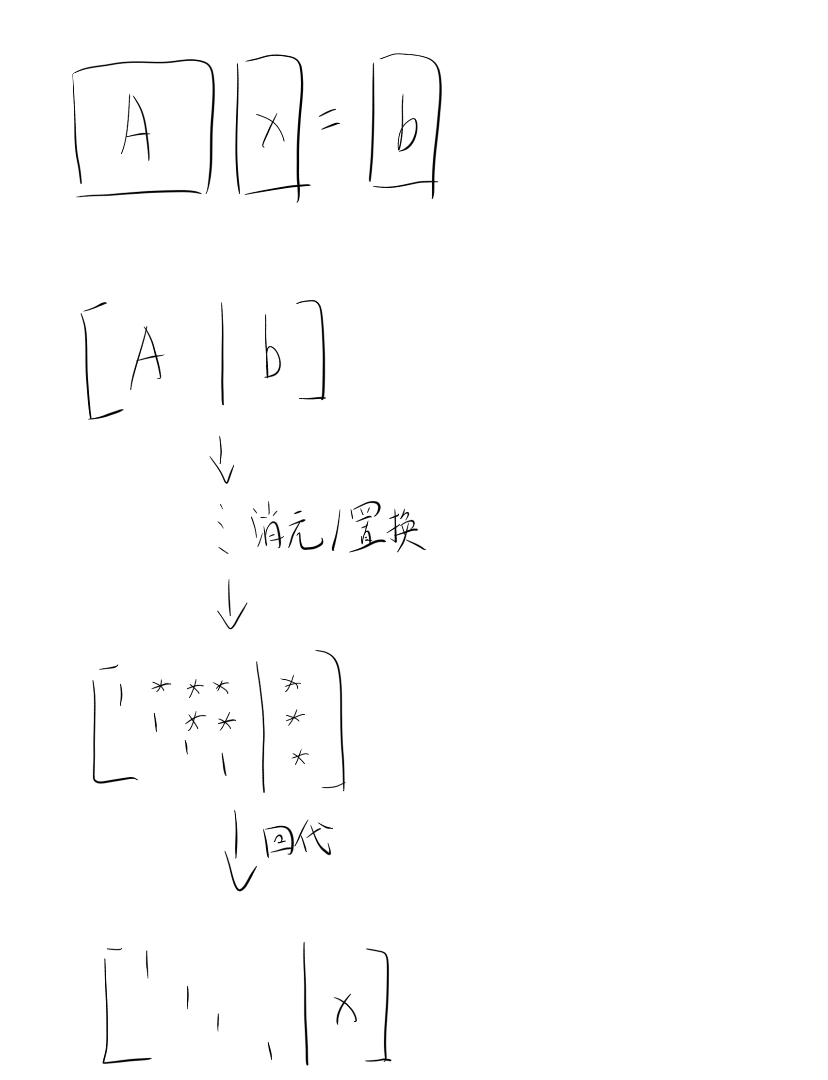 A x = b
[ A | b ]
↓
⋮ 消元/置换
↓
[ 1 * * * | *
1 * * | *
1
1 | * ]
↓ 回代
[ 1
1
1 | x ]
1